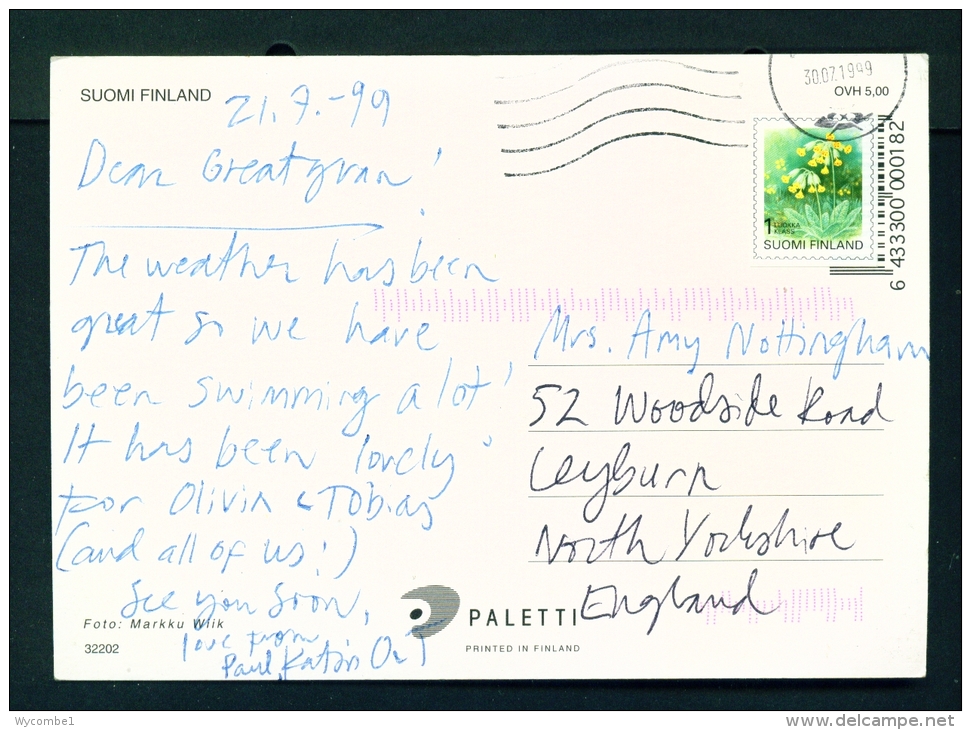 SUOMI FINLAND
21.7.-99
Dear Greatgran!
The weather has been
great so we have
been swimming a lot!
It has been lovely
for Olivia & Tobias
(and all of us!)
See you soon,
love from
Paul, Katri, O & T
Foto: Markku Wiik
32202
PALETTI
PRINTED IN FINLAND
30.07.1999
OVH 5,00
1 LUOKKA
KLASS
SUOMI FINLAND
6 433300 000182
Mrs. Amy Nottingham
52 Woodside Road
Leyburn
North Yorkshire
England
Wycombe1
delcampe.net